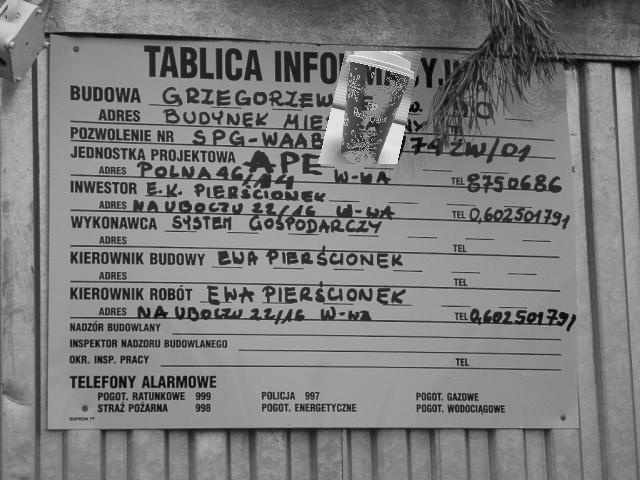 TABLICA
BUDOWA GRZEGORZEW
ADRES BUDYNEK MIE
POZWOLENIE NR SPG-WAAB 74 ZW/01
JEDNOSTKA PROJEKTOWA APE
ADRES POLNA 46/44 W-WA TEL 8750686
INWESTOR E.K. PIERŚCIONEK
ADRES NA UBOCZU 22/16 W-WA TEL 0,602501791
WYKONAWCA SYSTEM GOSPODARCZY
ADRES TEL
KIEROWNIK BUDOWY EWA PIERŚCIONEK
ADRES TEL
KIEROWNIK ROBÓT EWA PIERŚCIONEK
ADRES NA UBOCZU 22/16 W-WA TEL 0,602501791
NADZÓR BUDOWLANY
INSPEKTOR NADZORU BUDOWLANEGO
OKR. INSP. PRACY TEL
TELEFONY ALARMOWE
POGOT. RATUNKOWE 999 POLICJA 997 POGOT. GAZOWE
STRAŻ POŻARNA 998 POGOT. ENERGETYCZNE POGOT. WODOCIĄGOWE